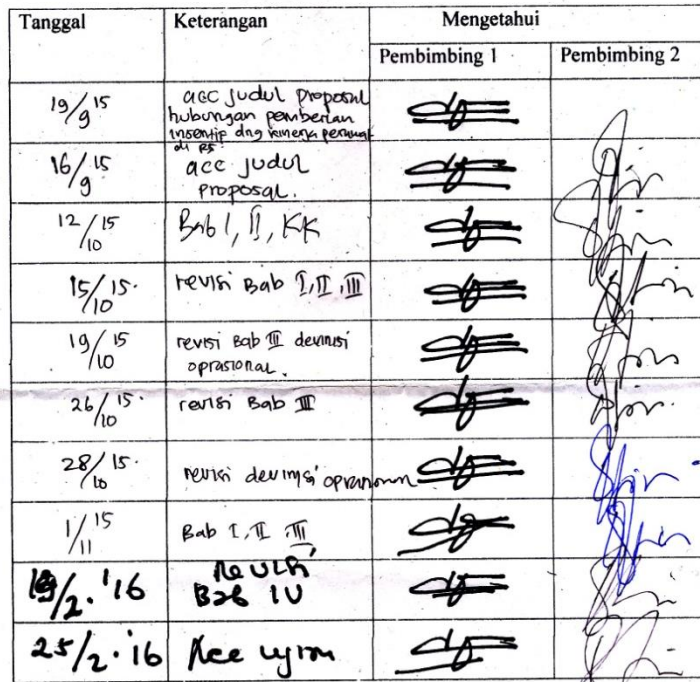 Tanggal Keterangan Mengetahui
Pembimbing 1 Pembimbing 2
19/9 15 acc judul proposal
hubungan pemberian
insentip dng kinerja perawat
di RS
16/9 15 acc judul
proposal.
12/10 15 Bab I, II, KK
15/10 15. revisi Bab I, II, III
19/10 15 revisi Bab III devinisi
oprasional.
26/10 15. revisi Bab III
28/10 15. revisi devinisi oprasional
1/11 15 Bab I, II, III
/2. '16 Revisi
Bab IV
25/2. '16 Acc ujian